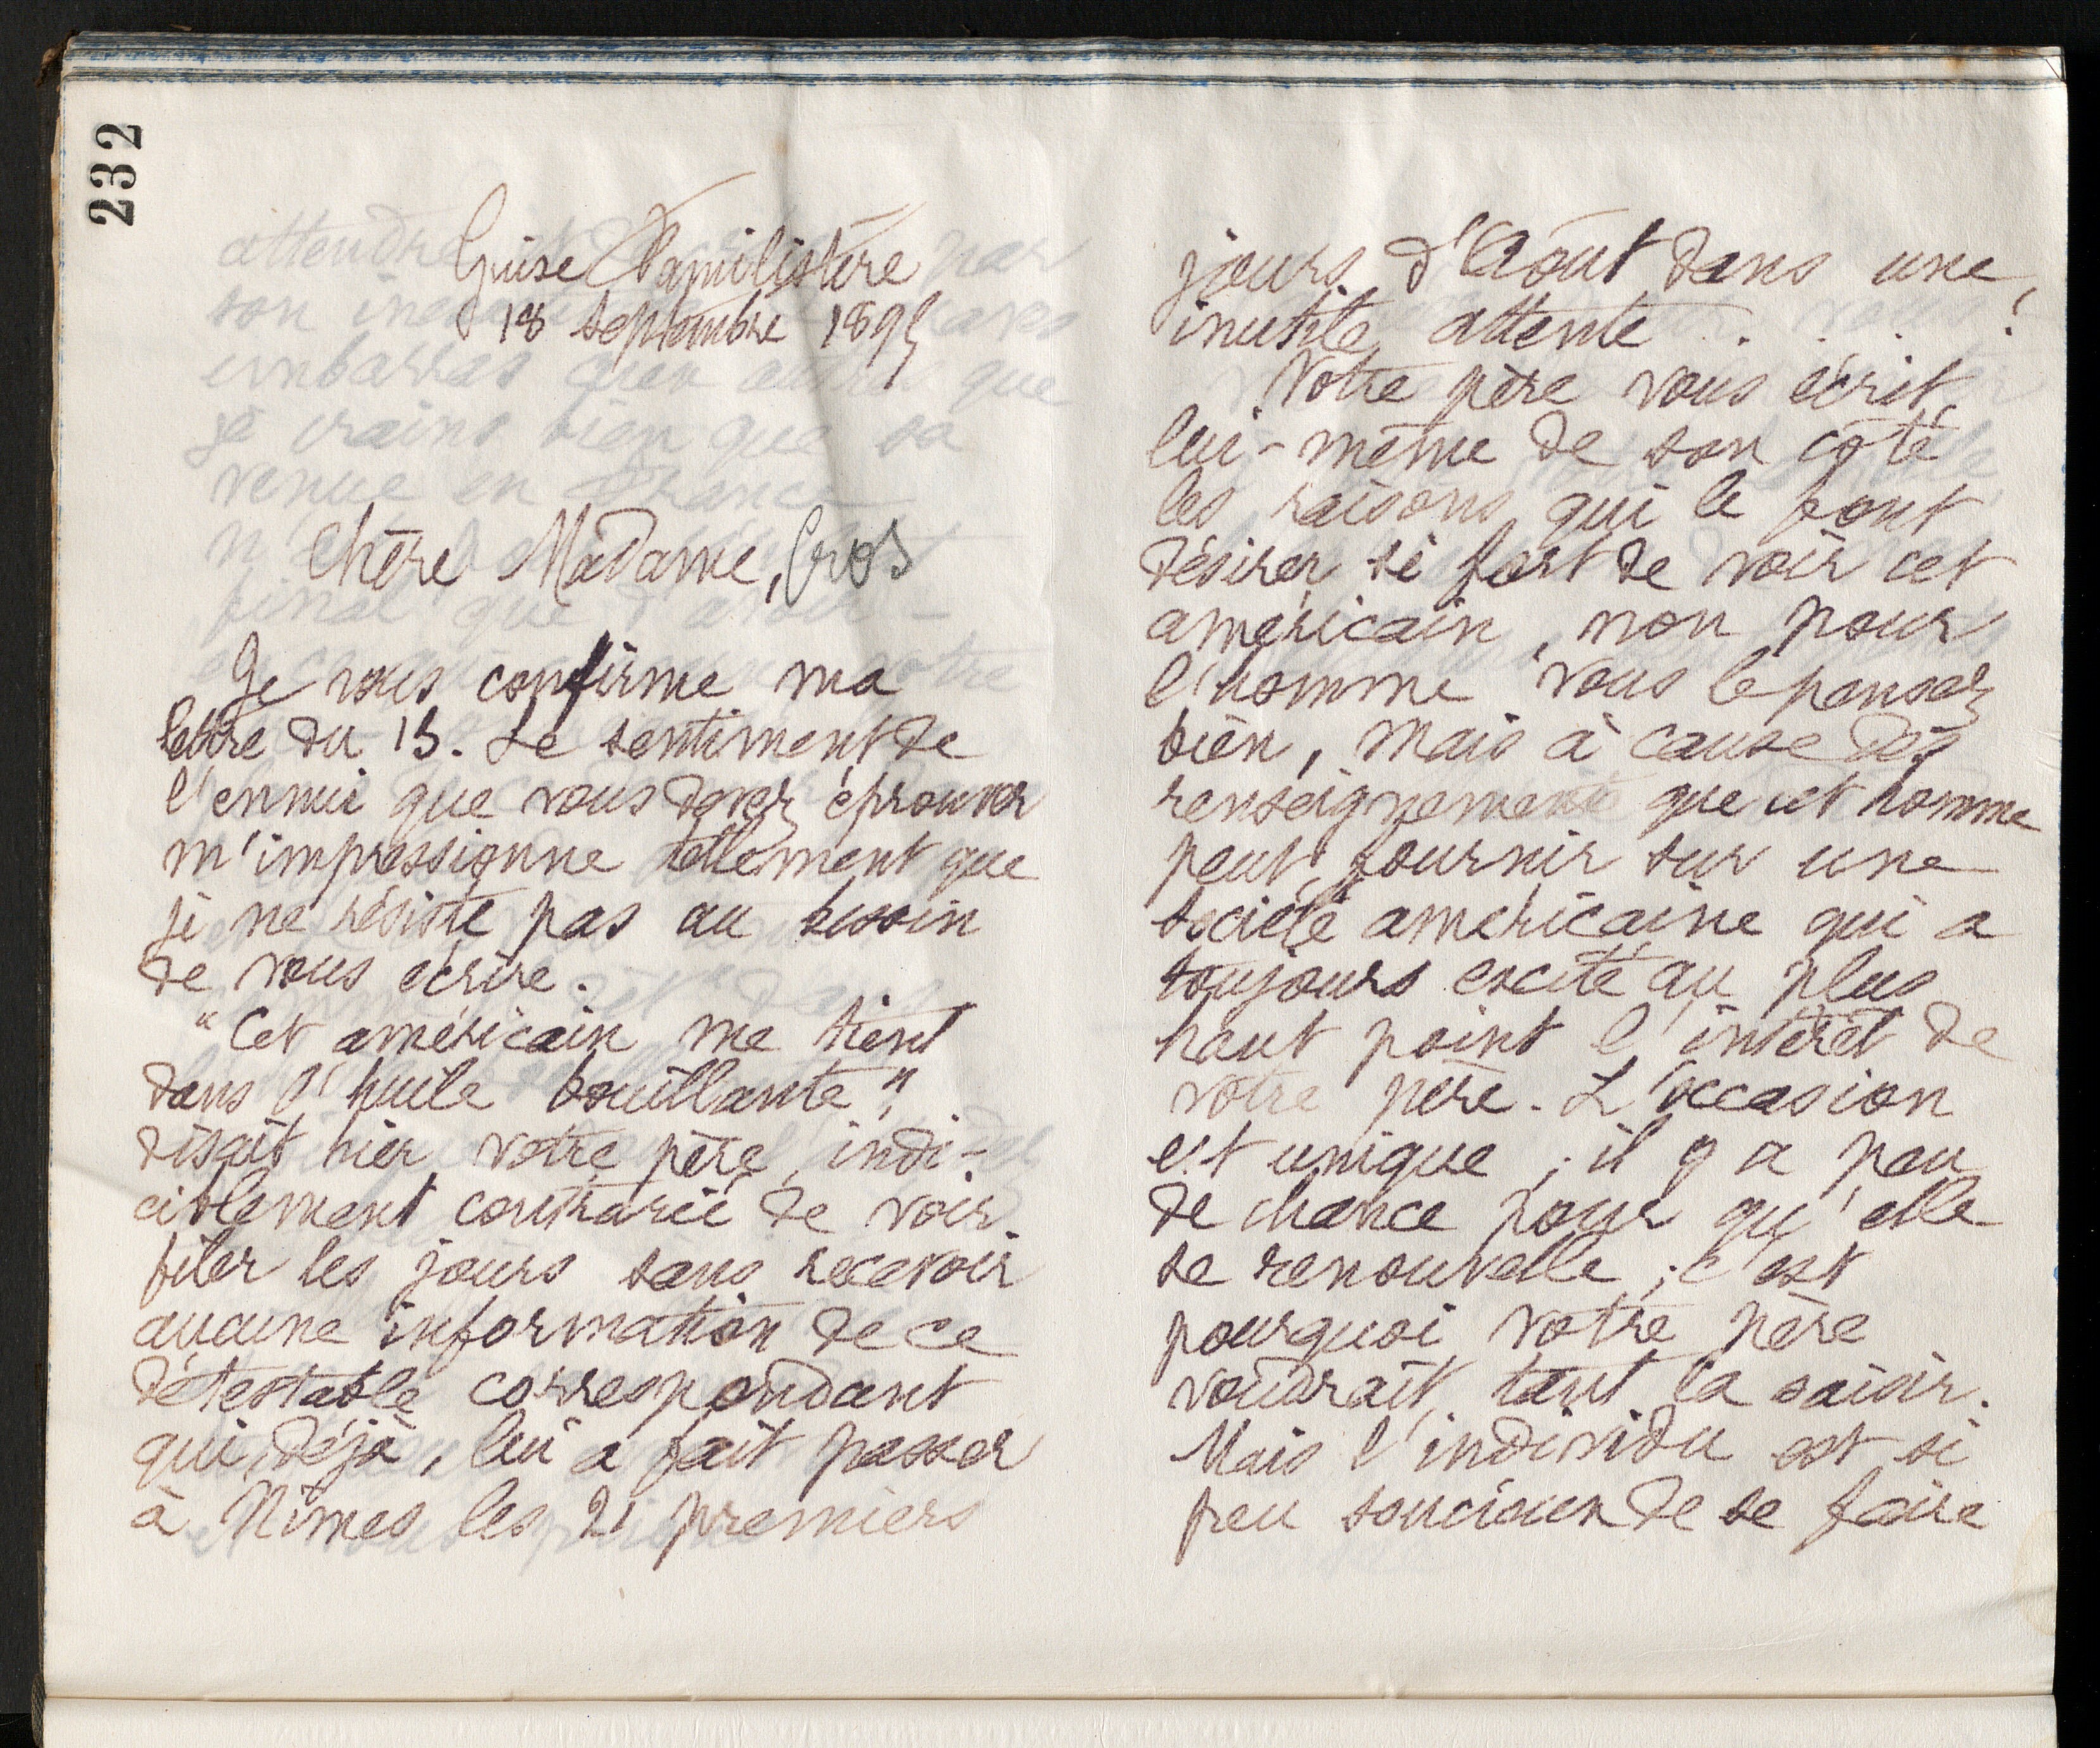 232
Guise Familistère
18 septembre 1895
Chère Madame, Cros
Je vous confirme ma
lettre du 15. Le sentiment de
l'ennui que vous devez éprouver
m'impressionne tellement que
je ne résiste pas au besoin
de vous écrire.
"Cet américain me tient
dans l'huile bouillante",
disait hier votre père, indi-
ciblement contrarié de voir
filer les jours sans recevoir
aucune information de ce
détestable correspondant
qui, déjà, lui a fait passer
à Nîmes les 21 premiers
jours d'Août dans une
inutile attente . . . !
Votre père vous écrit
lui-même de son côté
les raisons qui le font
désirer si fort de voir cet
américain, non pour
l'homme vous le pensez
bien, mais à cause des
renseignements que cet homme
peut fournir sur une
société américaine qui a
toujours excité au plus
haut point l'intérêt de
votre père. L'occasion
est unique ; il y a peu
de chance pour qu'elle
se renouvelle ; c'est
pourquoi votre père
voudrait tant la saisir.
Mais l'individu est si
peu soucieux de se faire